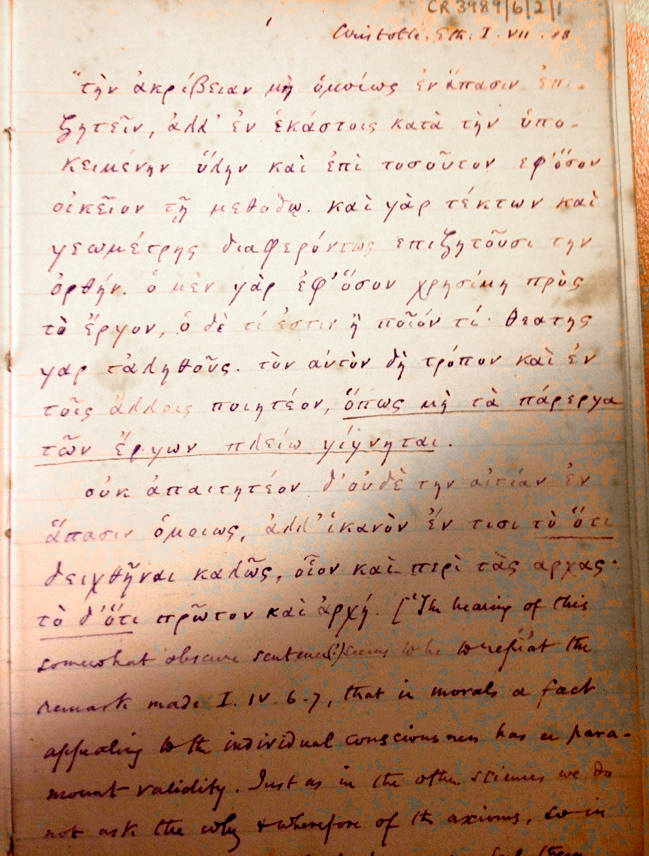 CR 3989/6/2/1
1
Aristotle. Eth. I. VII. 18
"τὴν ἀκρίβειαν μὴ ὁμοίως ἐν ἅπασιν ἐπι-
ζητεῖν, ἀλλ' ἐν ἑκάστοις κατὰ τὴν ὑπο-
κειμένην ὕλην καὶ ἐπὶ τοσοῦτον εφ' ὅσον
οἰκεῖον τῇ μεθοδῳ. καὶ γὰρ τέκτων καὶ
γεωμέτρης διαφερόντως επιζητοῦσι την
ὀρθήν. ὁ μὲν γὰρ ἐφ' ὅσον χρησίμη πρὸς
τὸ ἔργον, ὁ δὲ τί ἐστιν ἢ ποῖόν τί· θεατης
γαρ τἀληθοῦς. τὸν αὐτὸν δὴ τρόπον καὶ ἐν
τοῖς ἄλλοις ποιητέον, ὅπως μὴ τὰ πάρεργα
τῶν ἔργων πλείω γίγνηται.
οὐκ ἀπαιτητέον δ' οὐδὲ την αἰτίαν ἐν
ἅπασιν ὁμοιως, ἀλλ' ἱκανὸν ἔν τισι τὸ ὅτι
δειχθῆναι καλῶς, οἷον καὶ περὶ τὰς αρχας·
τὸ δ' ὅτι πρῶτον καὶ ἀρχή. ["The bearing of this
somewhat obscure sentence (:) seems to be to repeat the
remark made I. IV. 6-7, that in morals a fact
appealing to the individual consciousness has a para-
mount validity. Just as in the other sciences we do
not ask the why & wherefore of the axioms, so in